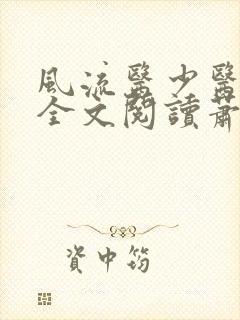 風流醫少醫
全文閱讀蕭
資中筠